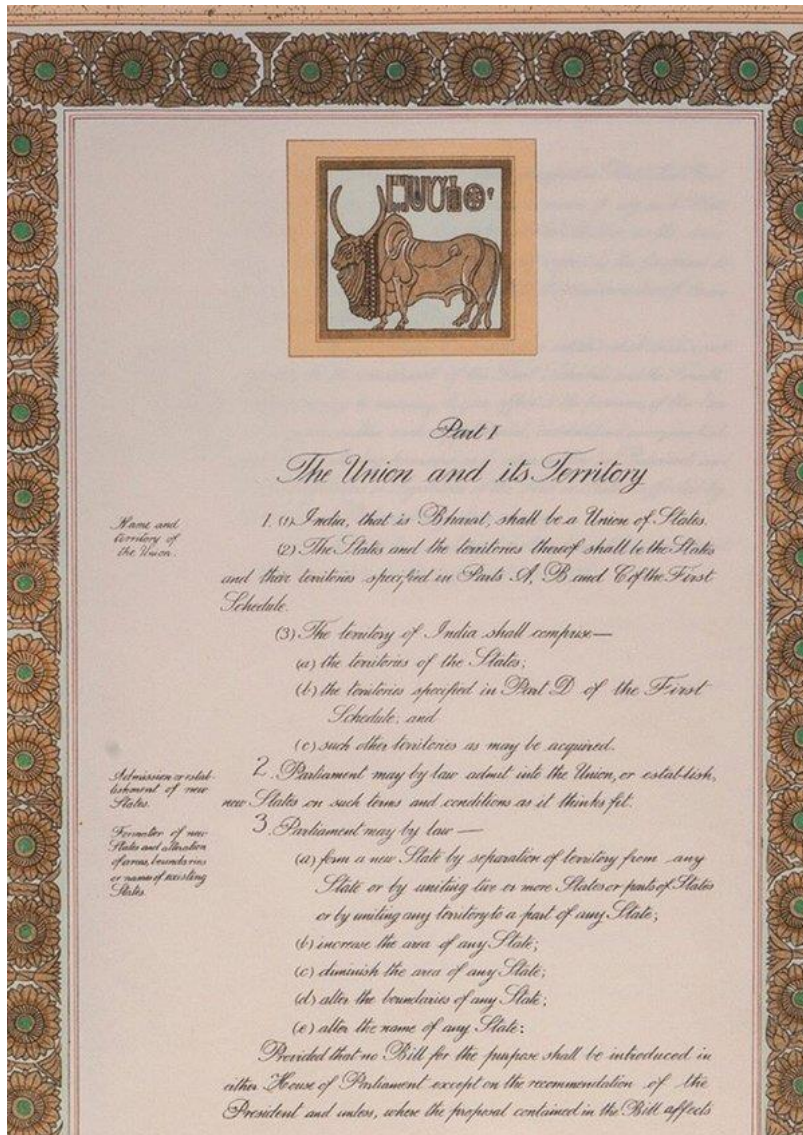 Part I
The Union and its Territory
Name and
territory of
the Union.
1. (1) India, that is Bharat, shall be a Union of States.
(2) The States and the territories thereof shall be the States
and their territories specified in Parts A, B and C of the First
Schedule.
(3) The territory of India shall comprise—
(a) the territories of the States;
(b) the territories specified in Part D of the First
Schedule; and
(c) such other territories as may be acquired.
Admission or estab-
lishment of new
States.
2. Parliament may by law admit into the Union, or establish,
new States on such terms and conditions as it thinks fit.
Formation of new
States and alteration
of areas, boundaries
or names of existing
States.
3. Parliament may by law —
(a) form a new State by separation of territory from any
State or by uniting two or more States or parts of States
or by uniting any territory to a part of any State;
(b) increase the area of any State;
(c) diminish the area of any State;
(d) alter the boundaries of any State;
(e) alter the name of any State:
Provided that no Bill for the purpose shall be introduced in
either House of Parliament except on the recommendation of the
President and unless, where the proposal contained in the Bill affects